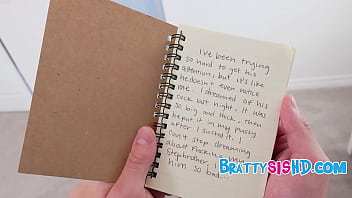 I've been trying
so hard to get his
attention, but it's like
he doesn't even notice
me. I dreamed of his
cock last night. It was
so big and thick. Then
he put it in my pussy
after I sucked it. I
can't stop dreaming
about fucking my
Stepbrother.
him so bad.
BRATTYSISHD.COM